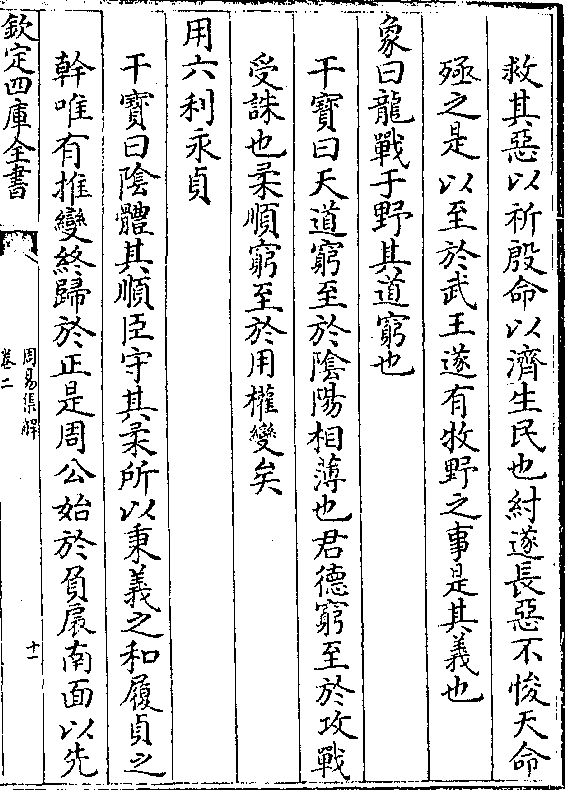 救其惡以祈殷命以濟生民也紂遂長惡不悛天命
殛之是以至於武王遂有牧野之事是其義也
象曰龍戰于野其道窮也
干寶曰天道窮至於陰陽相薄也君德窮至於攻戰
受誅也柔順窮至於用權變矣
用六利永貞
干寶曰陰體其順臣守其柔所以秉義之和履貞之
幹唯有推變終歸於正是周公始於負扆南面以先
欽定四庫全書
周易集解
卷二
十一